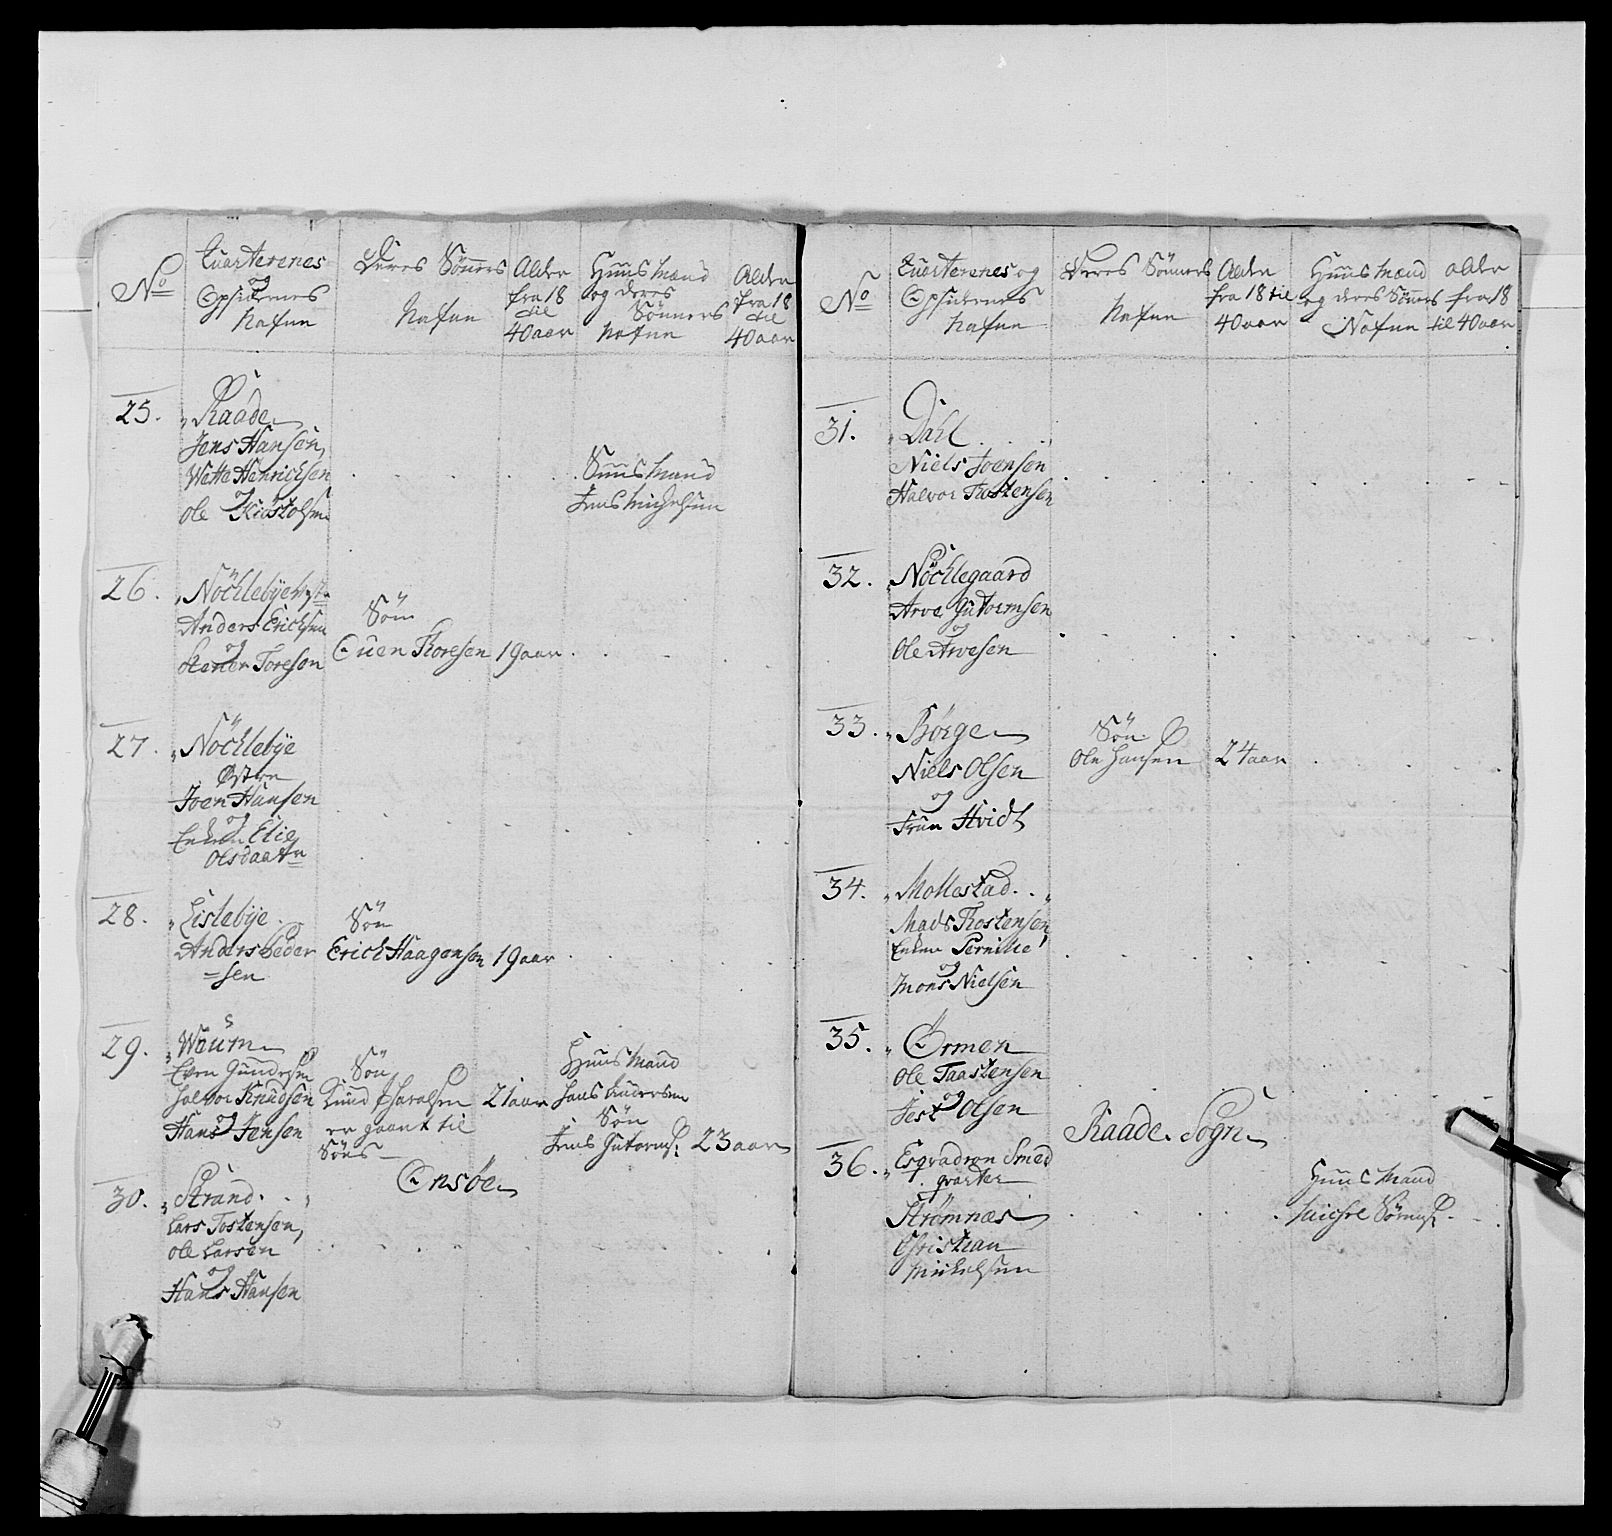 No
Quarterenes
og
Opsidernes
Nafne
Deres Sönners
Nafne
Alder
fra 18
til
40 aar
Huus Mænd
og deres
Sönners
Nafne
Alder
fra 18
til
40 aar
25.
Raade
Jens Hansen,
Wette Henrichsen
og
Ole Kiostolsen
Huusmand
Jens Michelsen
26.
Nöchlebye West.
Anders Erichsen
og
Stener Toresen
Sön
Ouen Thoresen 19 aar
27.
Nöchlebye
Østre
Joen Hansen
og
Enken Elie
Olsdaatr
28.
Listebye
Anders Peder
=sen
Sön
Erich Haagensen 19 aar
29.
Waum
Even Gundersen
Halvor Knudsen
og
Hans Jensen
Sön
Knud Haralsen 21 aar
er gaaet til
Söes
Huusmand
Hans Andersen
Sön
Jens Gutorms. 23 aar
Onsöe
30.
Strand
Lars Tostensen,
Ole Larsen
og
Hans Hansen
No
Quarterenes og
Opsidernes
Nafne
Deres Sönners
Nafne
Alder
fra 18 til
40 aar
Huus Mænd
og deres Sönners
Nafne
alder
fra 18
til 40 aar
31.
Dahl
Niels Joensen
Halvor Tostensen
32.
Nöchlegaard
Arve Gutormsen
og
Ole Arvesen
33.
Börge
Niels Olsen
og
Frue Hvidt
Sön
Ole Hansen 24 aar
34.
Mollestad
Mads Tostensen
Enken Pernille
og
Mons Nielsen
35.
Ormen
Ole Taastensen
og
Jest Olsen
Raade Sogn
36.
Esqvadron Smed
qvarter
Strömnæs
Christian
Michelsen
Huus Mand
Michel Sörens.